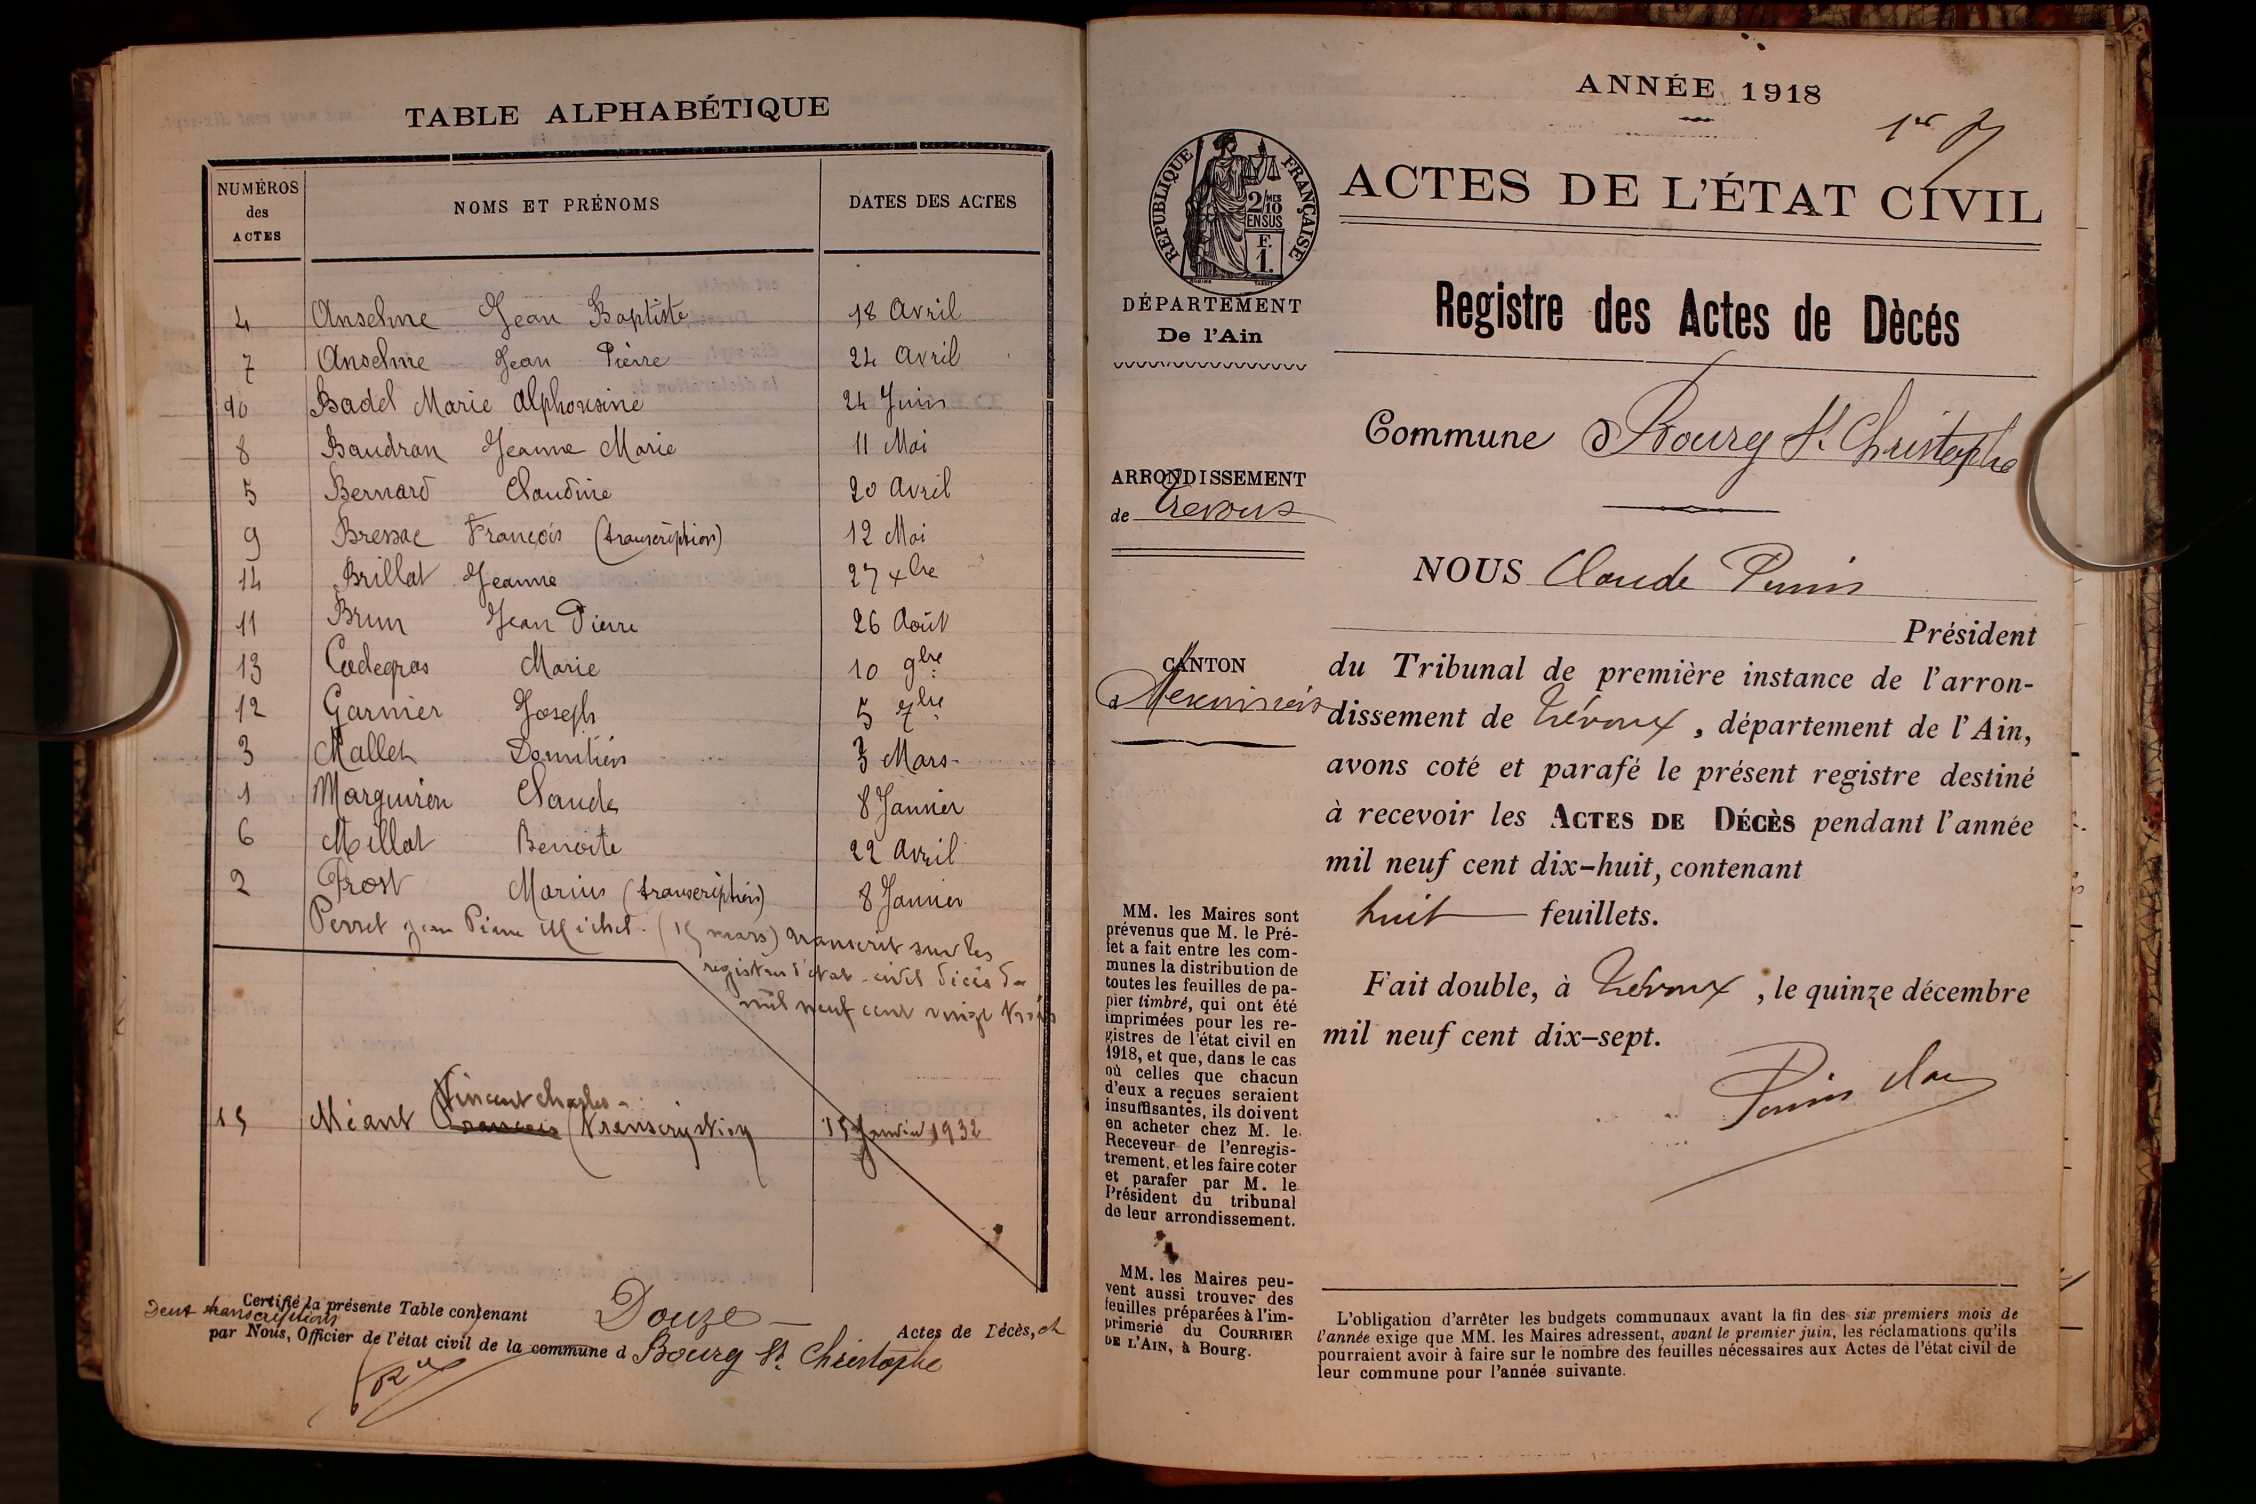 TABLE ALPHABÉTIQUE
NUMÉROS des ACTES
NOMS ET PRÉNOMS
DATES DES ACTES
4 Anselme Jean Baptiste 18 Avril
7 Anselme Jean Pierre 24 Avril
10 Badel Marie Alphonsine 24 Juin
8 Baudran Jeanne Marie 11 Mai
5 Bernard Claudine 20 Avril
9 Bressac François (transcription) 12 Mai
14 Brillat Jeanne 27 xbre
11 Brun Jean Pierre 26 Août
13 Cadegros Marie 10 9bre
12 Garnier Joseph 5 7bre
3 Mallet Domitien 3 Mars
1 Marguiron Claude 8 Janvier
6 Millat Benoite 22 Avril
2 Prost Marius (transcription) 8 Janvier
Perret Jean Pierre Michel (15 mars) transcrit sur les
registres d'état-civil décès de
mil neuf cent vingt trois
Vincent Charles
15 Méant François (transcription 15 Janvier 1932
Certifié la présente Table contenant Douze Actes de Décès, et
Deux transcriptions
par Nous, Officier de l'état civil de la commune d Bourg St Christophe
ANNÉE 1918
1er
ACTES DE L'ÉTAT CIVIL
RÉPUBLIQUE FRANÇAISE
2/10 MES
EN SUS
F.
1.
DÉPARTEMENT
De l'Ain
Registre des Actes de Dècés
Commune d Bourg St Christophe
ARRONDISSEMENT
de Trevoux
NOUS Claude Perrin
Président
CANTON
d Meximieux
du Tribunal de première instance de l'arron-
dissement de Trévoux, département de l'Ain,
avons coté et parafé le présent registre destiné
à recevoir les ACTES DE DÉCÈS pendant l'année
mil neuf cent dix-huit, contenant
huit feuillets.
Fait double, à Trévoux, le quinze décembre
mil neuf cent dix-sept.
MM. les Maires sont
prévenus que M. le Pré-
fet a fait entre les com-
munes la distribution de
toutes les feuilles de pa-
pier timbré, qui ont été
imprimées pour les re-
gistres de l'état civil en
1918, et que, dans le cas
où celles que chacun
d'eux a reçues seraient
insuffisantes, ils doivent
en acheter chez M. le
Receveur de l'enregis-
trement, et les faire coter
et parafer par M. le
Président du tribunal
de leur arrondissement.
MM. les Maires peu-
vent aussi trouver des
feuilles préparées à l'im-
primerie du COURRIER
DE L'AIN, à Bourg.
L'obligation d'arrêter les budgets communaux avant la fin des six premiers mois de
l'année exige que MM. les Maires adressent, avant le premier juin, les réclamations qu'ils
pourraient avoir à faire sur le nombre des feuilles nécessaires aux Actes de l'état civil de
leur commune pour l'année suivante.